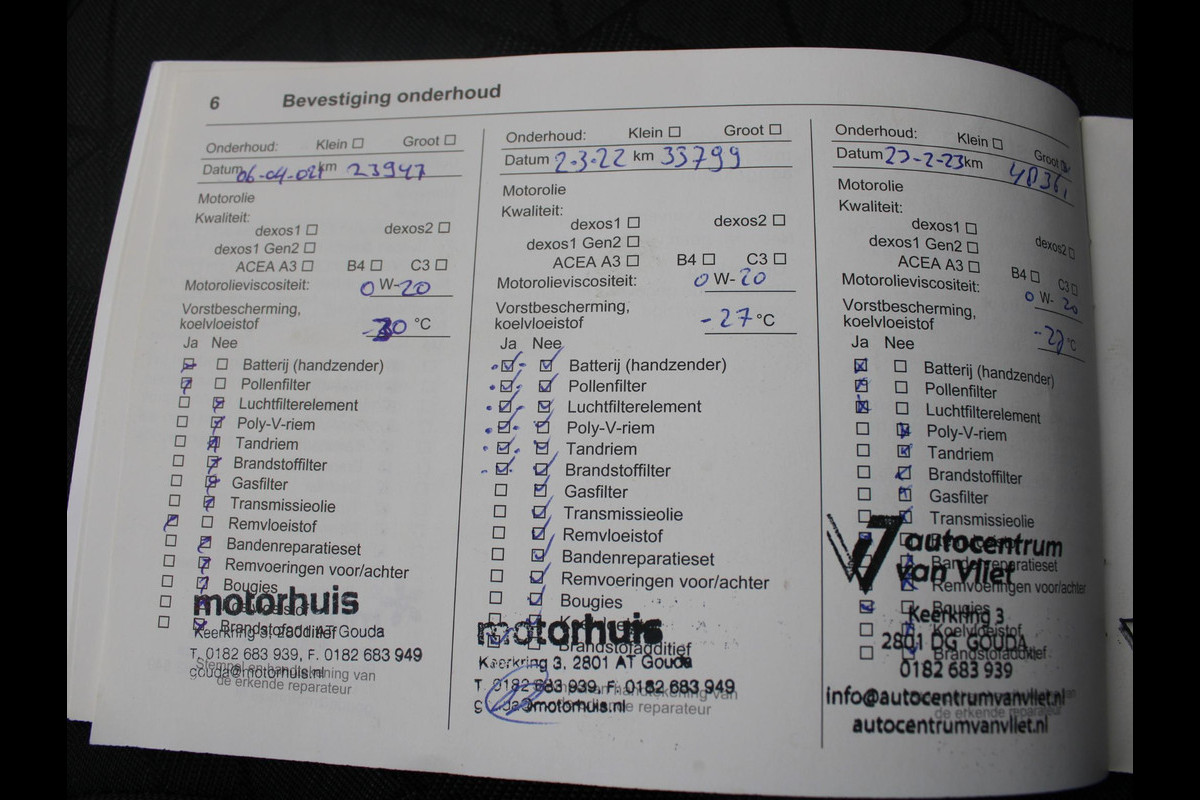 6 Bevestiging onderhoud
Onderhoud: Klein ☐ Groot ☐
Datum 06-04-021 km 23947
Motorolie
Kwaliteit:
dexos1 ☐ dexos2 ☐
dexos1 Gen2 ☐
ACEA A3 ☐ B4 ☐ C3 ☐
Motorolieviscositeit: 0 W-20
Vorstbescherming,
koelvloeistof -30 °C
Ja Nee
Batterij (handzender)
Pollenfilter
Luchtfilterelement
Poly-V-riem
Tandriem
Brandstoffilter
Gasfilter
Transmissieolie
Remvloeistof
Bandenreparatieset
Remvoeringen voor/achter
Bougies
motorhuis
Brandstofadditief
Keerkring 3, 2801 AT Gouda
T. 0182 683 939, F. 0182 683 949
Stempel en handtekening van
gouda@motorhuis.nl
de erkende reparateur
Onderhoud: Klein ☐ Groot ☐
Datum 2-3-22 km 33799
Motorolie
Kwaliteit:
dexos1 ☐ dexos2 ☐
dexos1 Gen2 ☐
ACEA A3 ☐ B4 ☐ C3 ☐
Motorolieviscositeit: 0 W-20
Vorstbescherming,
koelvloeistof -27 °C
Ja Nee
Batterij (handzender)
Pollenfilter
Luchtfilterelement
Poly-V-riem
Tandriem
Brandstoffilter
Gasfilter
Transmissieolie
Remvloeistof
Bandenreparatieset
Remvoeringen voor/achter
Bougies
motorhuis
Brandstofadditief
Keerkring 3, 2801 AT Gouda
T. 0182 683 939, F. 0182 683 949
gouda@motorhuis.nl
erkende reparateur
Onderhoud: Klein ☐ Groot
Datum km
Motorolie
Kwaliteit:
dexos1 ☐ dexos2 ☐
dexos1 Gen2 ☐
ACEA A3 ☐ B4 ☐ C3 ☐
Motorolieviscositeit: 0 W-20
Vorstbescherming,
koelvloeistof °C
Ja Nee
Batterij (handzender)
Pollenfilter
Luchtfilterelement
Poly-V-riem
Tandriem
Brandstoffilter
Gasfilter
Transmissieolie
autocentrum
van Vliet
Remvoeringen voor/achter
Bougies
Keerkring 3
Koelvloeistof
2801 DG GOUDA
Brandstofadditief
0182 683 939
info@autocentrumvanvliet.nl
de erkende reparateur
autocentrumvanvliet.nl